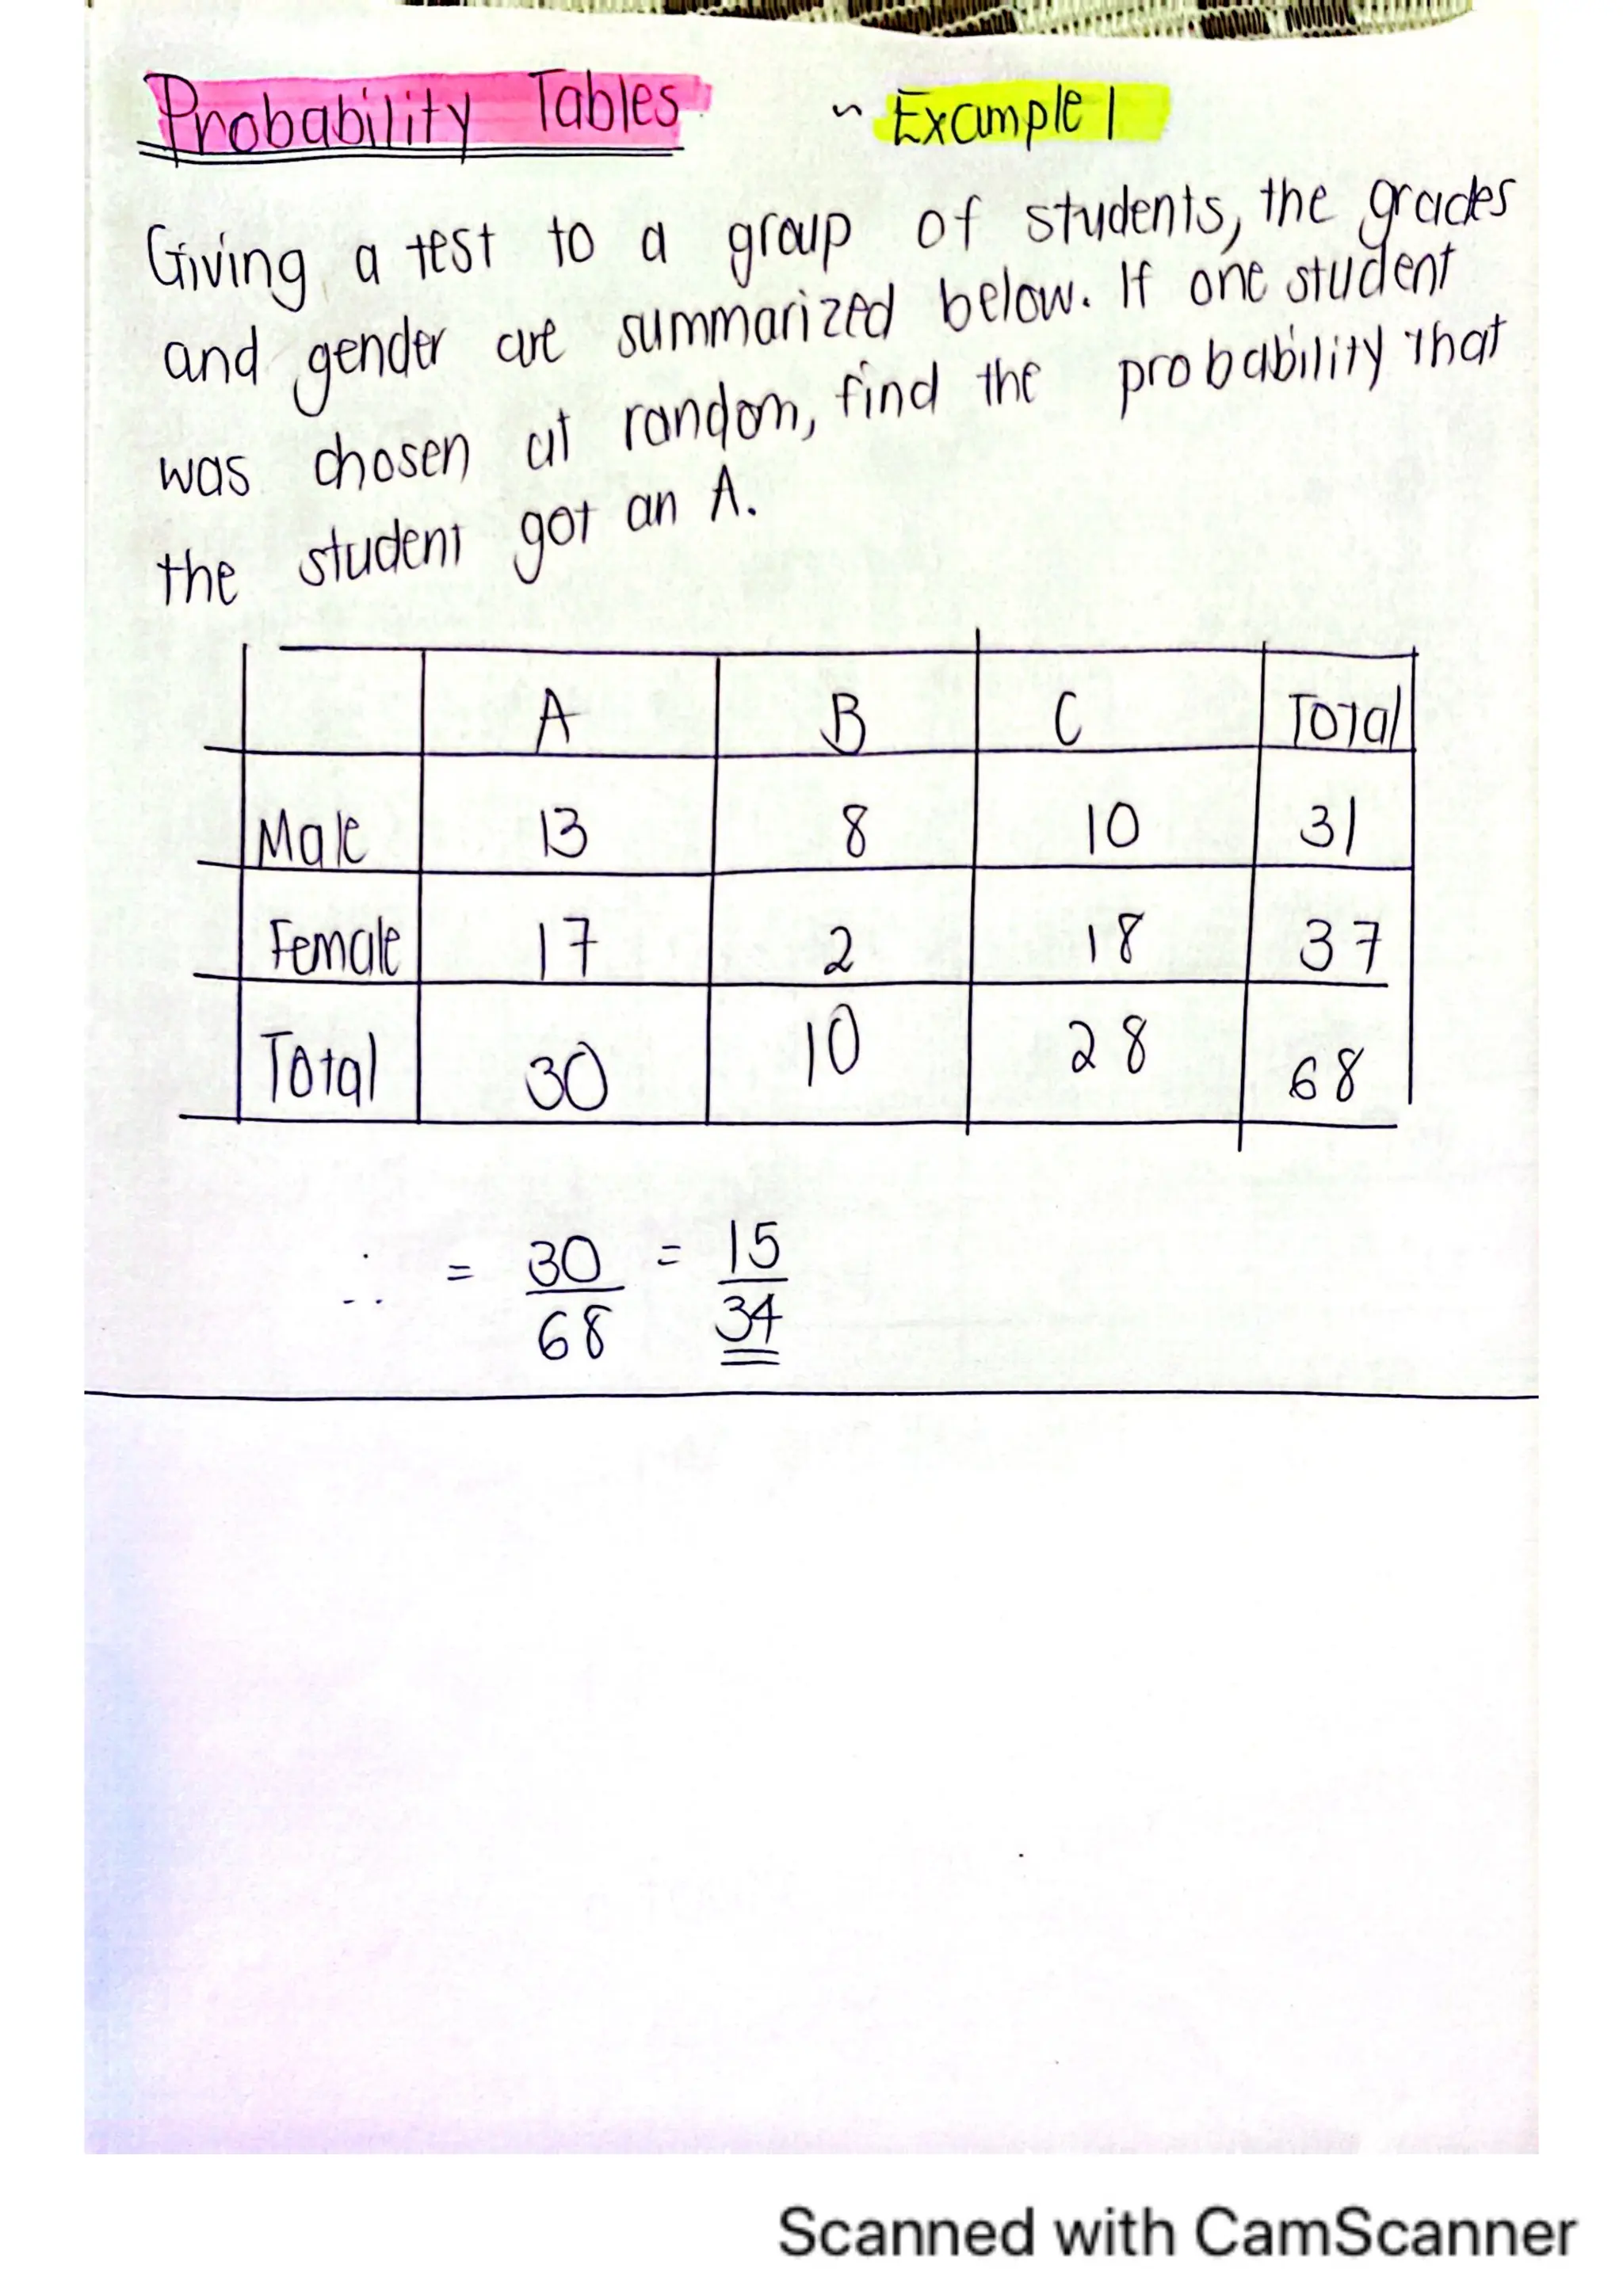 Probability Tables ~ Example 1
Giving a test to a group of students, the grades
and gender are summarized below. If one student
was chosen at random, find the probability that
the student got an A.
A B C Total
Male 13 8 10 31
Female 17 2 18 37
Total 30 10 28 68
∴ = 30/68 = 15/34
Scanned with CamScanner